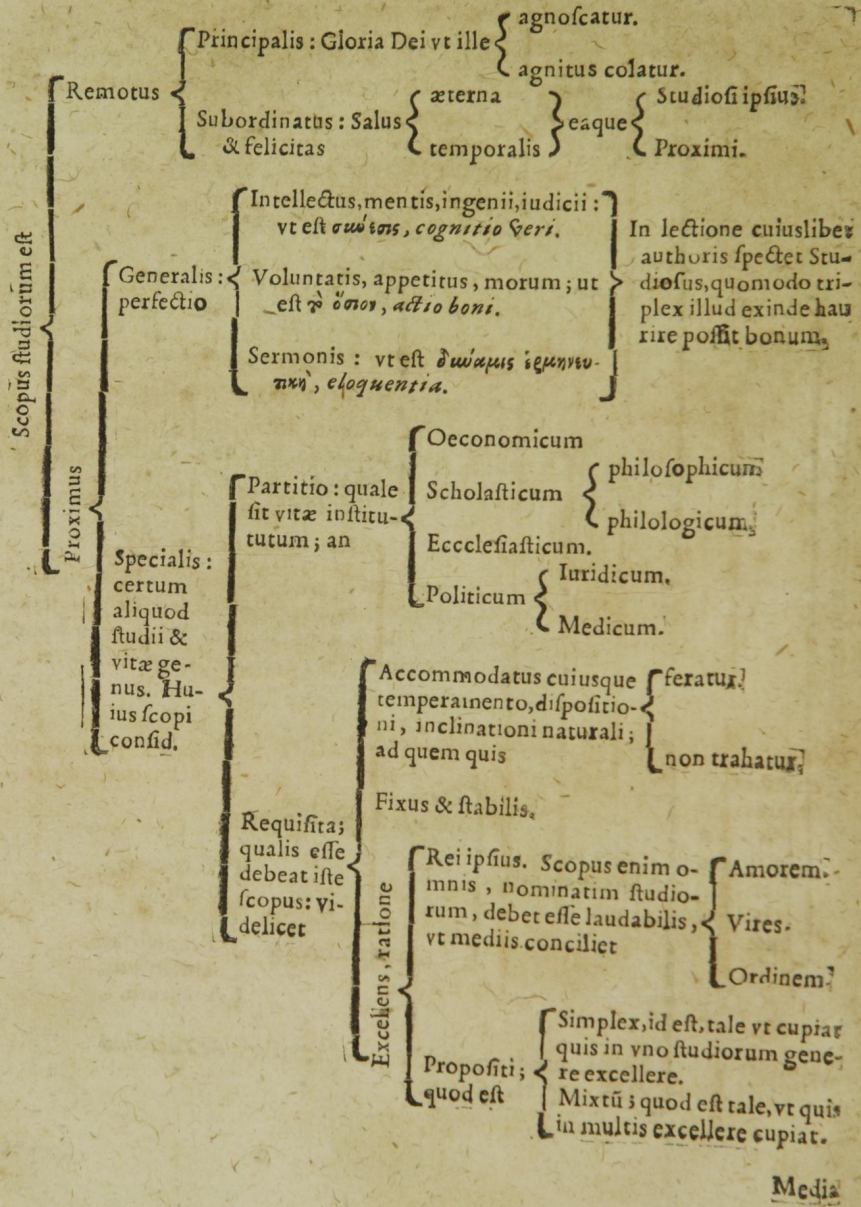 Scopus studiorum est
Remotus
Principalis : Gloria Dei vt ille
agnoſcatur.
agnitus colatur.
Subordinatus : Salus
& felicitas
æterna
temporalis
eaque
Studioſi ipſius.
Proximi.
Proximus
Generalis :
perfectio
Intellectus, mentis, ingenii, iudicii :
vt eſt σύνεσις, cognitio veri.
Voluntatis, appetitus, morum ; ut
eſt τὸ ὅσιον, actio boni.
Sermonis : vt eſt δύναμις ἑρμηνευ-
τικὴ, eloquentia.
In lectione cuiuslibet
authoris ſpectet Stu-
dioſus, quomodo tri-
plex illud exinde hau
rire poſſit bonum.
Specialis :
certum
aliquod
ſtudii &
vitæ ge-
nus. Hu-
ius ſcopi
conſid.
Partitio : quale
ſit vitæ inſtitu-
tutum ; an
Oeconomicum
Scholaſticum
philoſophicum
philologicum.
Ecccleſiaſticum.
Politicum
Iuridicum.
Medicum.
Requiſita ;
qualis eſſe
debeat iſte
ſcopus : vi-
delicet
Accommodatus cuiusque
temperamento, diſpoſitio-
ni, inclinationi naturali ;
ad quem quis
feratur.
non trahatur.
Fixus & ſtabilis.
Excellens, ratione
Rei ipſius. Scopus enim o-
mnis, nominatim ſtudio-
rum, debet eſſe laudabilis,
vt mediis conciliet
Amorem.
Vires.
Ordinem.
Propoſiti ;
quod eſt
Simplex, id eſt, tale vt cupiat
quis in vno ſtudiorum gene-
re excellere.
Mixtũ ; quod eſt tale, vt quis
in multis excellere cupiat.
Media